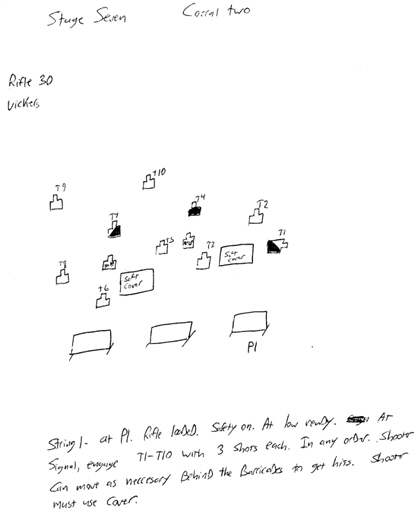 Stage Seven Corral two
Rifle 30
Vickers
T10
T9
T4
T7
T2
T5
T1
T3
Soft cover
T8
Soft
cover
T6
P1
String 1- at P1. Rifle loaded. Safety on. At low ready. At
Signal, engage T1-T10 with 3 shots each. In any order. Shooter
Can move as neccesary Behind the Barricades to get hits. Shooter
must use cover.